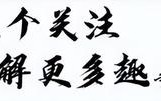 个关注
解更多趣